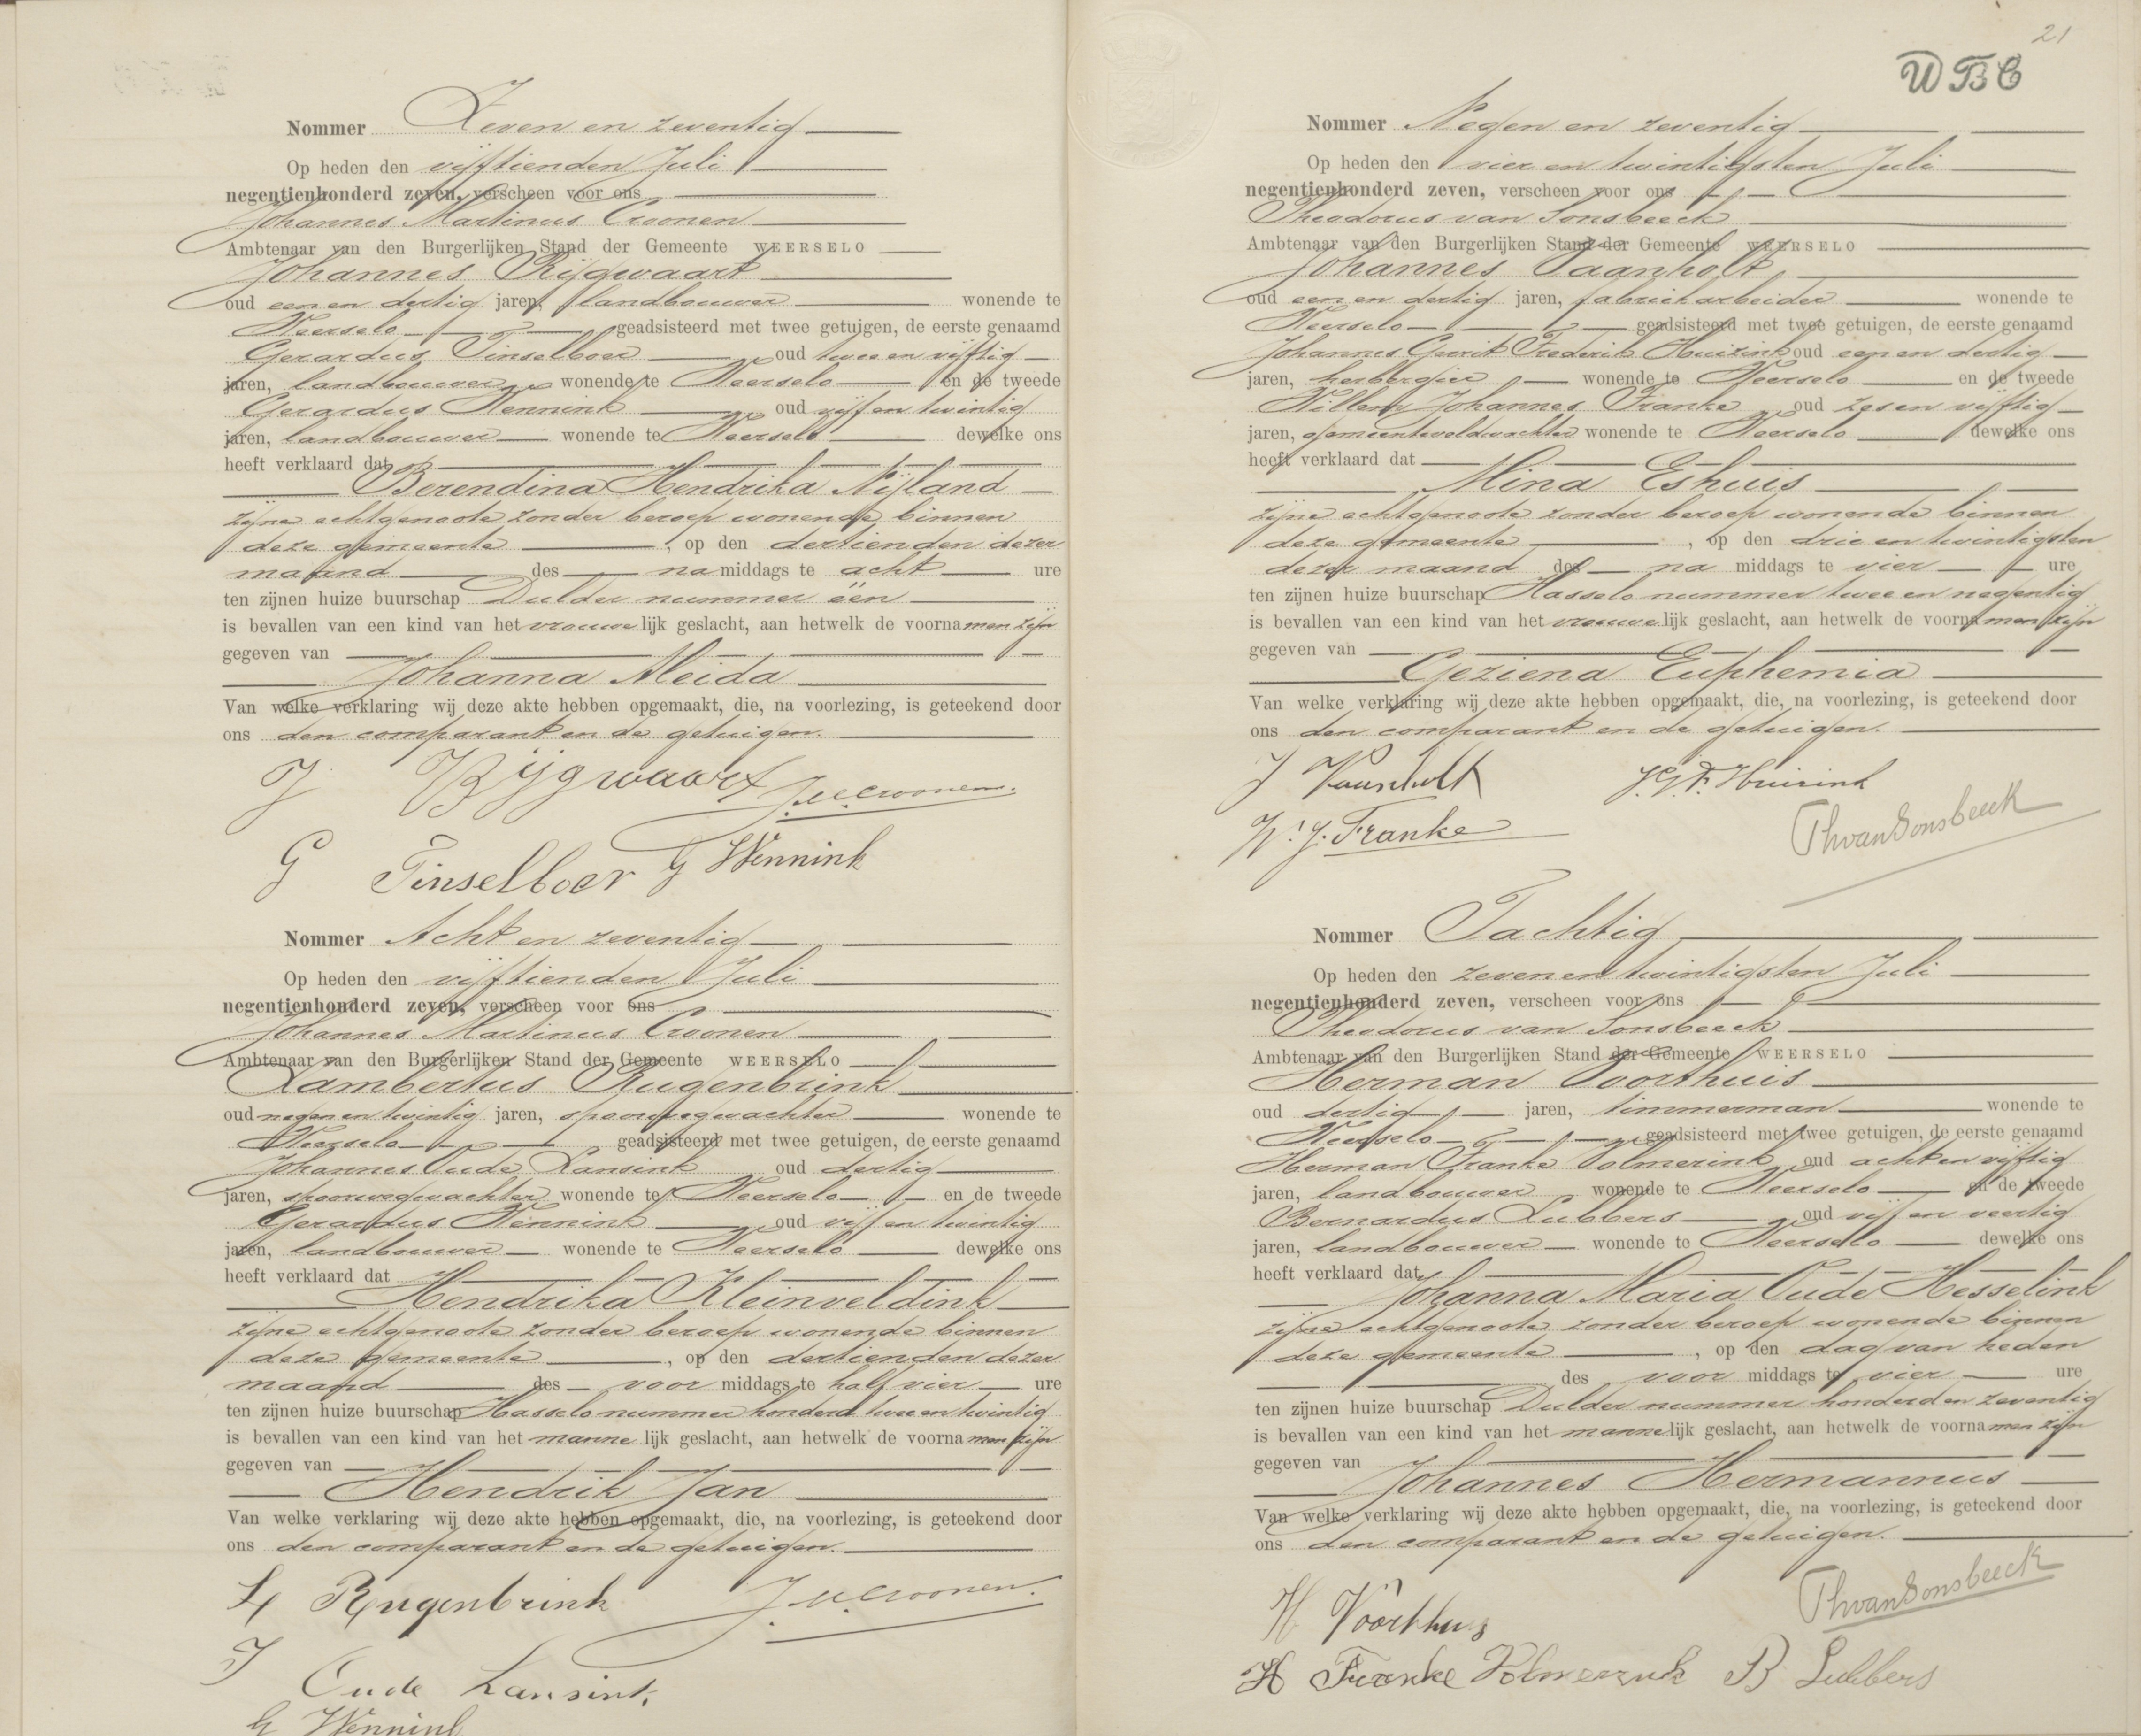 Nommer Zeven en zeventig
Op heden den vijftienden Juli
negentienhonderd zeven, verscheen voor ons
Johannes Martinus Croonen
Ambtenaar van den Burgerlijken Stand der Gemeente WEERSELO
Johannes Rijgwaart
oud een en dertig jaren, landbouwer wonende te
Weerselo geadsisteerd met twee getuigen, de eerste genaamd
Gerardus Tinselboer oud twee en vijftig
jaren, landbouwer wonende te Weerselo en de tweede
Gerardus Wennink oud vijf en twintig
jaren, landbouwer wonende te Weerselo dewelke ons
heeft verklaard dat
Berendina Hendrika Nijland
zijne echtgenoote zonder beroep wonende binnen
deze gemeente, op den dertienden dezer
maand des na middags te acht ure
ten zijnen huize buurschap Dulder nummer één
is bevallen van een kind van het vrouwelijk geslacht, aan hetwelk de voornamen zijn
gegeven van
Johanna Aleida
Van welke verklaring wij deze akte hebben opgemaakt, die, na voorlezing, is geteekend door
ons den comparant en de getuigen.
J Rijgwaart J.M.Croonen.
G Tinselboer G Wennink
Nommer Acht en zeventig
Op heden den vijftienden Juli
negentienhonderd zeven, verscheen voor ons
Johannes Martinus Croonen
Ambtenaar van den Burgerlijken Stand der Gemeente WEERSELO
Lambertus Rugenbrink
oud negen en twintig jaren, spoorwegwachter wonende te
Weerselo geadsisteerd met twee getuigen, de eerste genaamd
Johannes Oude Lansink oud dertig
jaren, spoorwegwachter wonende te Weerselo en de tweede
Gerardus Wennink oud vijf en twintig
jaren, landbouwer wonende te Weerselo dewelke ons
heeft verklaard dat
Hendrika Kleinveldink
zijne echtgenoote zonder beroep wonende binnen
deze gemeente, op den dertienden dezer
maand des voor middags te half vier ure
ten zijnen huize buurschap Hasselo nummer honderd twee en twintig
is bevallen van een kind van het mannelijk geslacht, aan hetwelk de voornamen zijn
gegeven van
Hendrik Jan
Van welke verklaring wij deze akte hebben opgemaakt, die, na voorlezing, is geteekend door
ons den comparant en de getuigen.
L Rugenbrink J.M.Croonen.
J Oude Lansink
G Wennink
21
WBC
Nommer Negen en zeventig
Op heden den vier en twintigsten Juli
negentienhonderd zeven, verscheen voor ons
Theodorus van Sonsbeeck
Ambtenaar van den Burgerlijken Stand der Gemeente WEERSELO
Johannes Vaanholt
oud een en dertig jaren, fabriekarbeider wonende te
Weerselo geadsisteerd met twee getuigen, de eerste genaamd
Johannes Gerrit Frederik Huizink oud een en dertig
jaren, herbergier wonende te Weerselo en de tweede
Willem Johannes Franke oud zes en vijftig
jaren, gemeenteveldwachter wonende te Weerselo dewelke ons
heeft verklaard dat
Mina Eshuis
zijne echtgenoote zonder beroep wonende binnen
deze gemeente, op den drie en twintigsten
dezer maand des na middags te vier ure
ten zijnen huize buurschap Hasselo nummer twee en negentig
is bevallen van een kind van het vrouwelijk geslacht, aan hetwelk de voornamen zijn
gegeven van
Geziena Euphemia
Van welke verklaring wij deze akte hebben opgemaakt, die, na voorlezing, is geteekend door
ons den comparant en de getuigen.
J Vaanholt J.G.F. Huizink
W.J. Franke ThvanSonsbeeck
Nommer Tachtig
Op heden den zeven en twintigsten Juli
negentienhonderd zeven, verscheen voor ons
Theodorus van Sonsbeeck
Ambtenaar van den Burgerlijken Stand der Gemeente WEERSELO
Herman Voorthuis
oud dertig jaren, timmerman wonende te
Weerselo geadsisteerd met twee getuigen, de eerste genaamd
Herman Franke Volmerink oud acht en vijftig
jaren, landbouwer wonende te Weerselo en de tweede
Bernardus Lubbers oud vijf en veertig
jaren, landbouwer wonende te Weerselo dewelke ons
heeft verklaard dat
Johanna Maria Oude Hesselink
zijne echtgenoote zonder beroep wonende binnen
deze gemeente, op den dag van heden
des voor middags te vier ure
ten zijnen huize buurschap Dulder nummer honderd en zeventig
is bevallen van een kind van het mannelijk geslacht, aan hetwelk de voornamen zijn
gegeven van
Johannes Hermannus
Van welke verklaring wij deze akte hebben opgemaakt, die, na voorlezing, is geteekend door
ons den comparant en de getuigen.
ThvanSonsbeeck
H Voorthuis
H Franke Volmerink B Lubbers